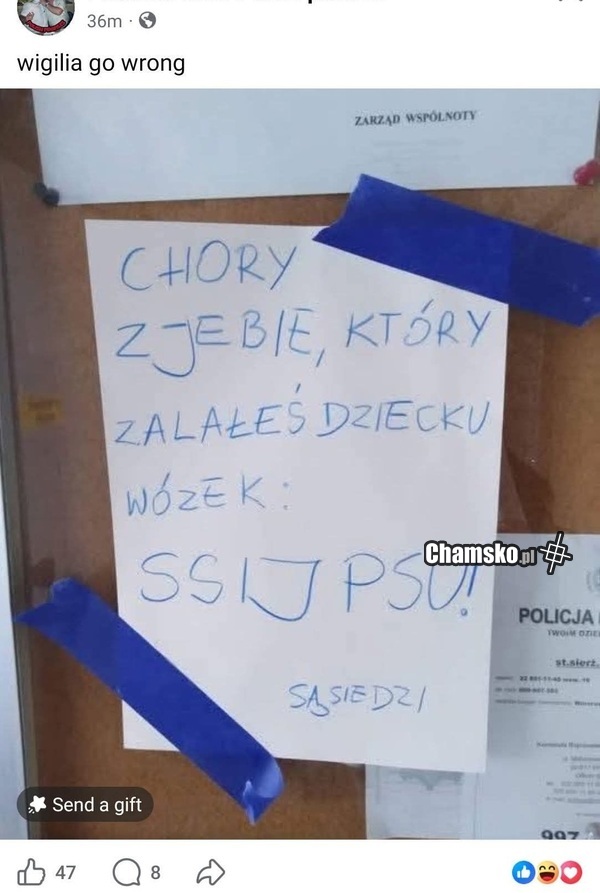 36m
wigilia go wrong
ZARZĄD WSPÓLNOTY
CHORY
ZJEBIE, KTÓRY
ZALAŁEŚ DZIECKU
WÓZEK:
SSIJ PSU!
SĄSIEDZI
Chamsko.pl
POLICJA
st.sierż.
997
Send a gift
47
8